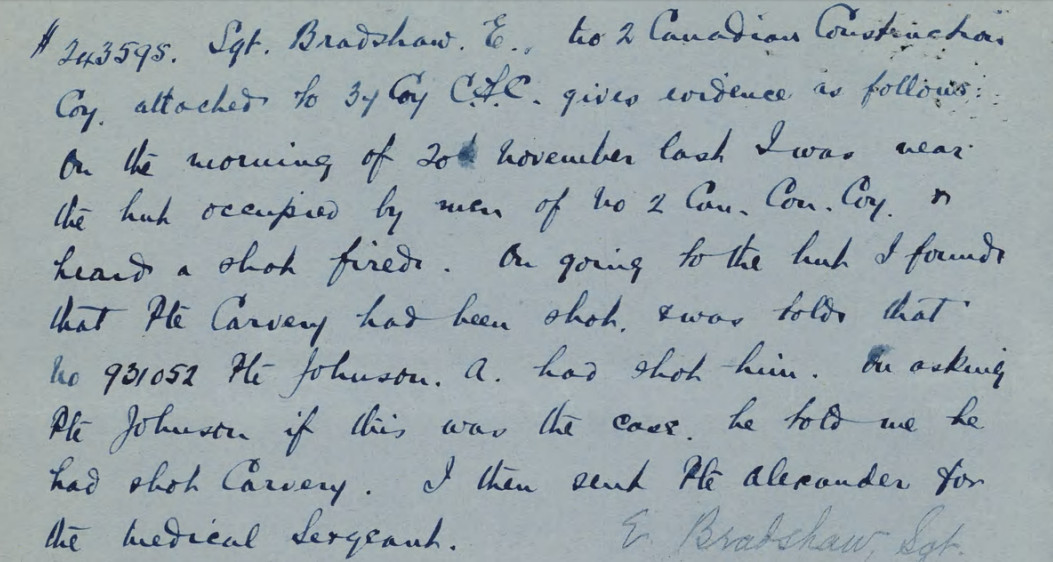 # 243595. Sgt. Bradshaw. E., No 2 Canadian Construction
Coy. attached to 37 Coy C.F.C. gives evidence as follows:
On the morning of 20th November last I was near
the hut occupied by men of No 2 Can. Con. Coy. &
heard a shot fired. On going to the hut I found
that Pte Carvery had been shot. & was told that
No 931052 Pte Johnson. A. had shot him. On asking
Pte Johnson if this was the case. he told me he
had shot Carvery. I then sent Pte Alexander for
the medical Sergeant.
E Bradshaw, Sgt.